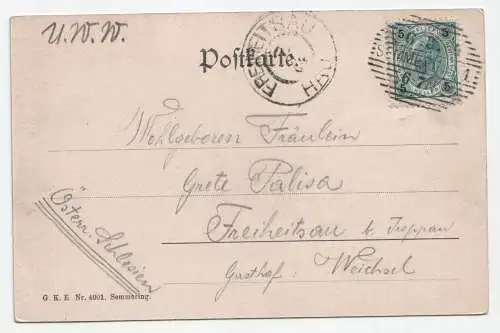 U. W. W.
Postkarte.
FREIHEITSAU
HAU
5 5
Wohlgeboren Fräulein
Grete Palisa
Freiheitsau b. Troppau
Gasthof: Weichsel
"Österr. Schlesien"
G. K. E. Nr. 4001. Semmering.